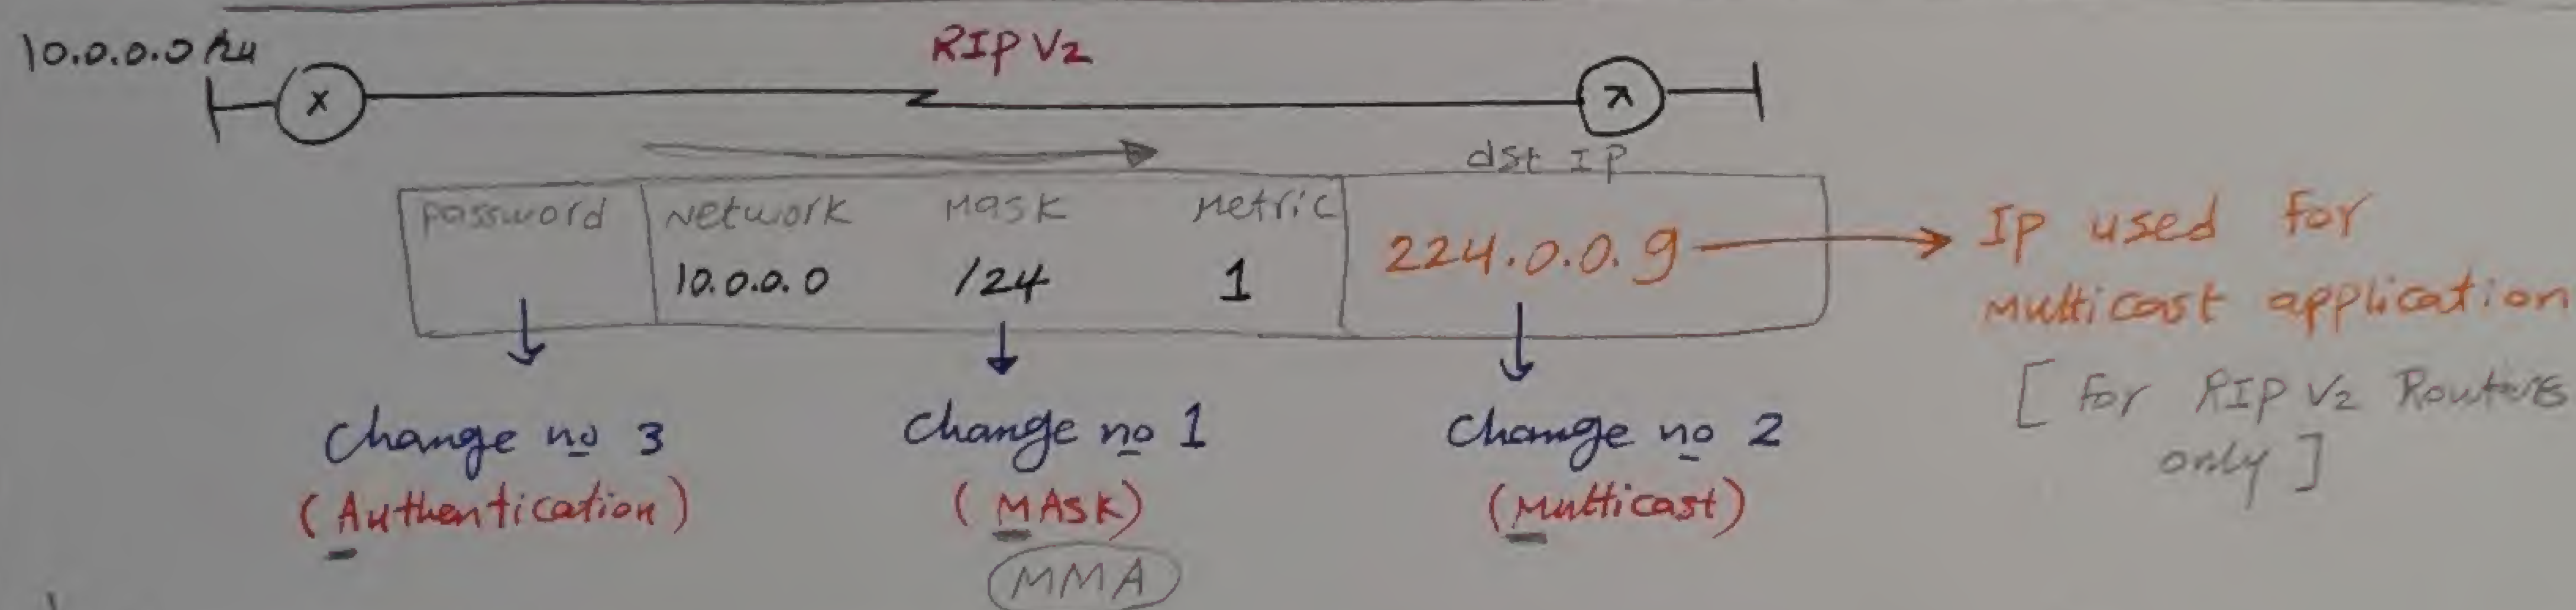 10.0.0.0/24
RIP V2
X
dst IP
password Network Mask Metric
10.0.0.0 /24 1
224.0.0.9
IP used for
Multicast application
[ for RIP V2 Routers
only ]
Change no 3
(Authentication)
Change no 1
(MAsk)
Change no 2
(Multicast)
MMA